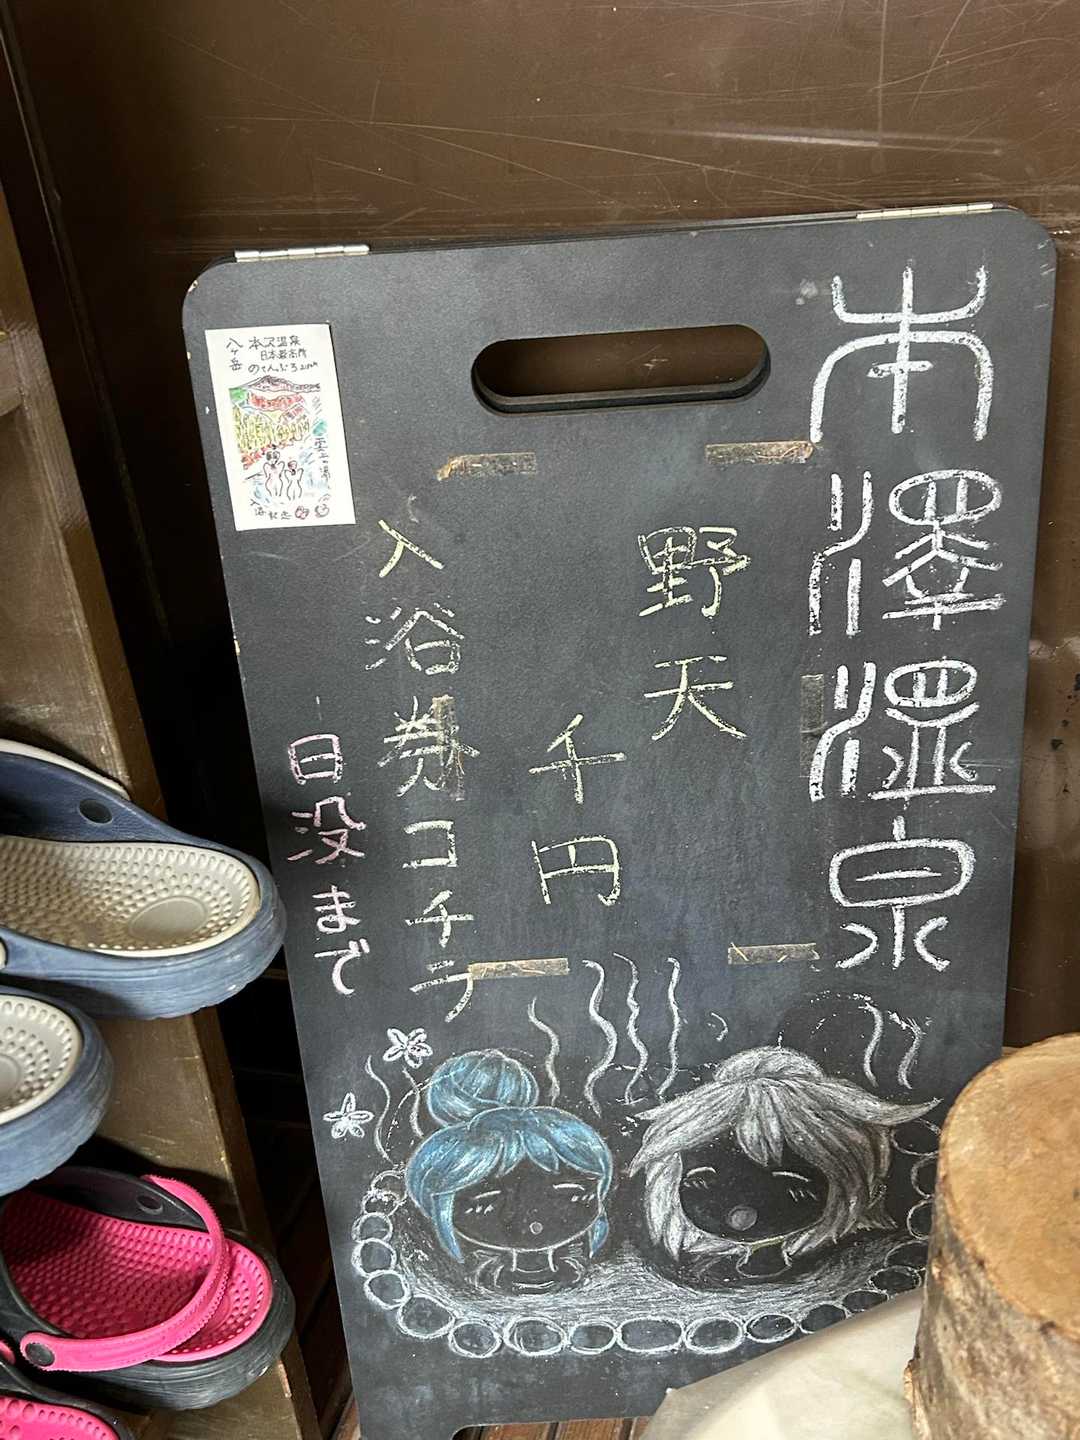 本澤温泉
野天
千円
入浴券コチラ
日没まで
八ヶ岳
本沢温泉
日本最高所
のてんぶろ
入浴記念